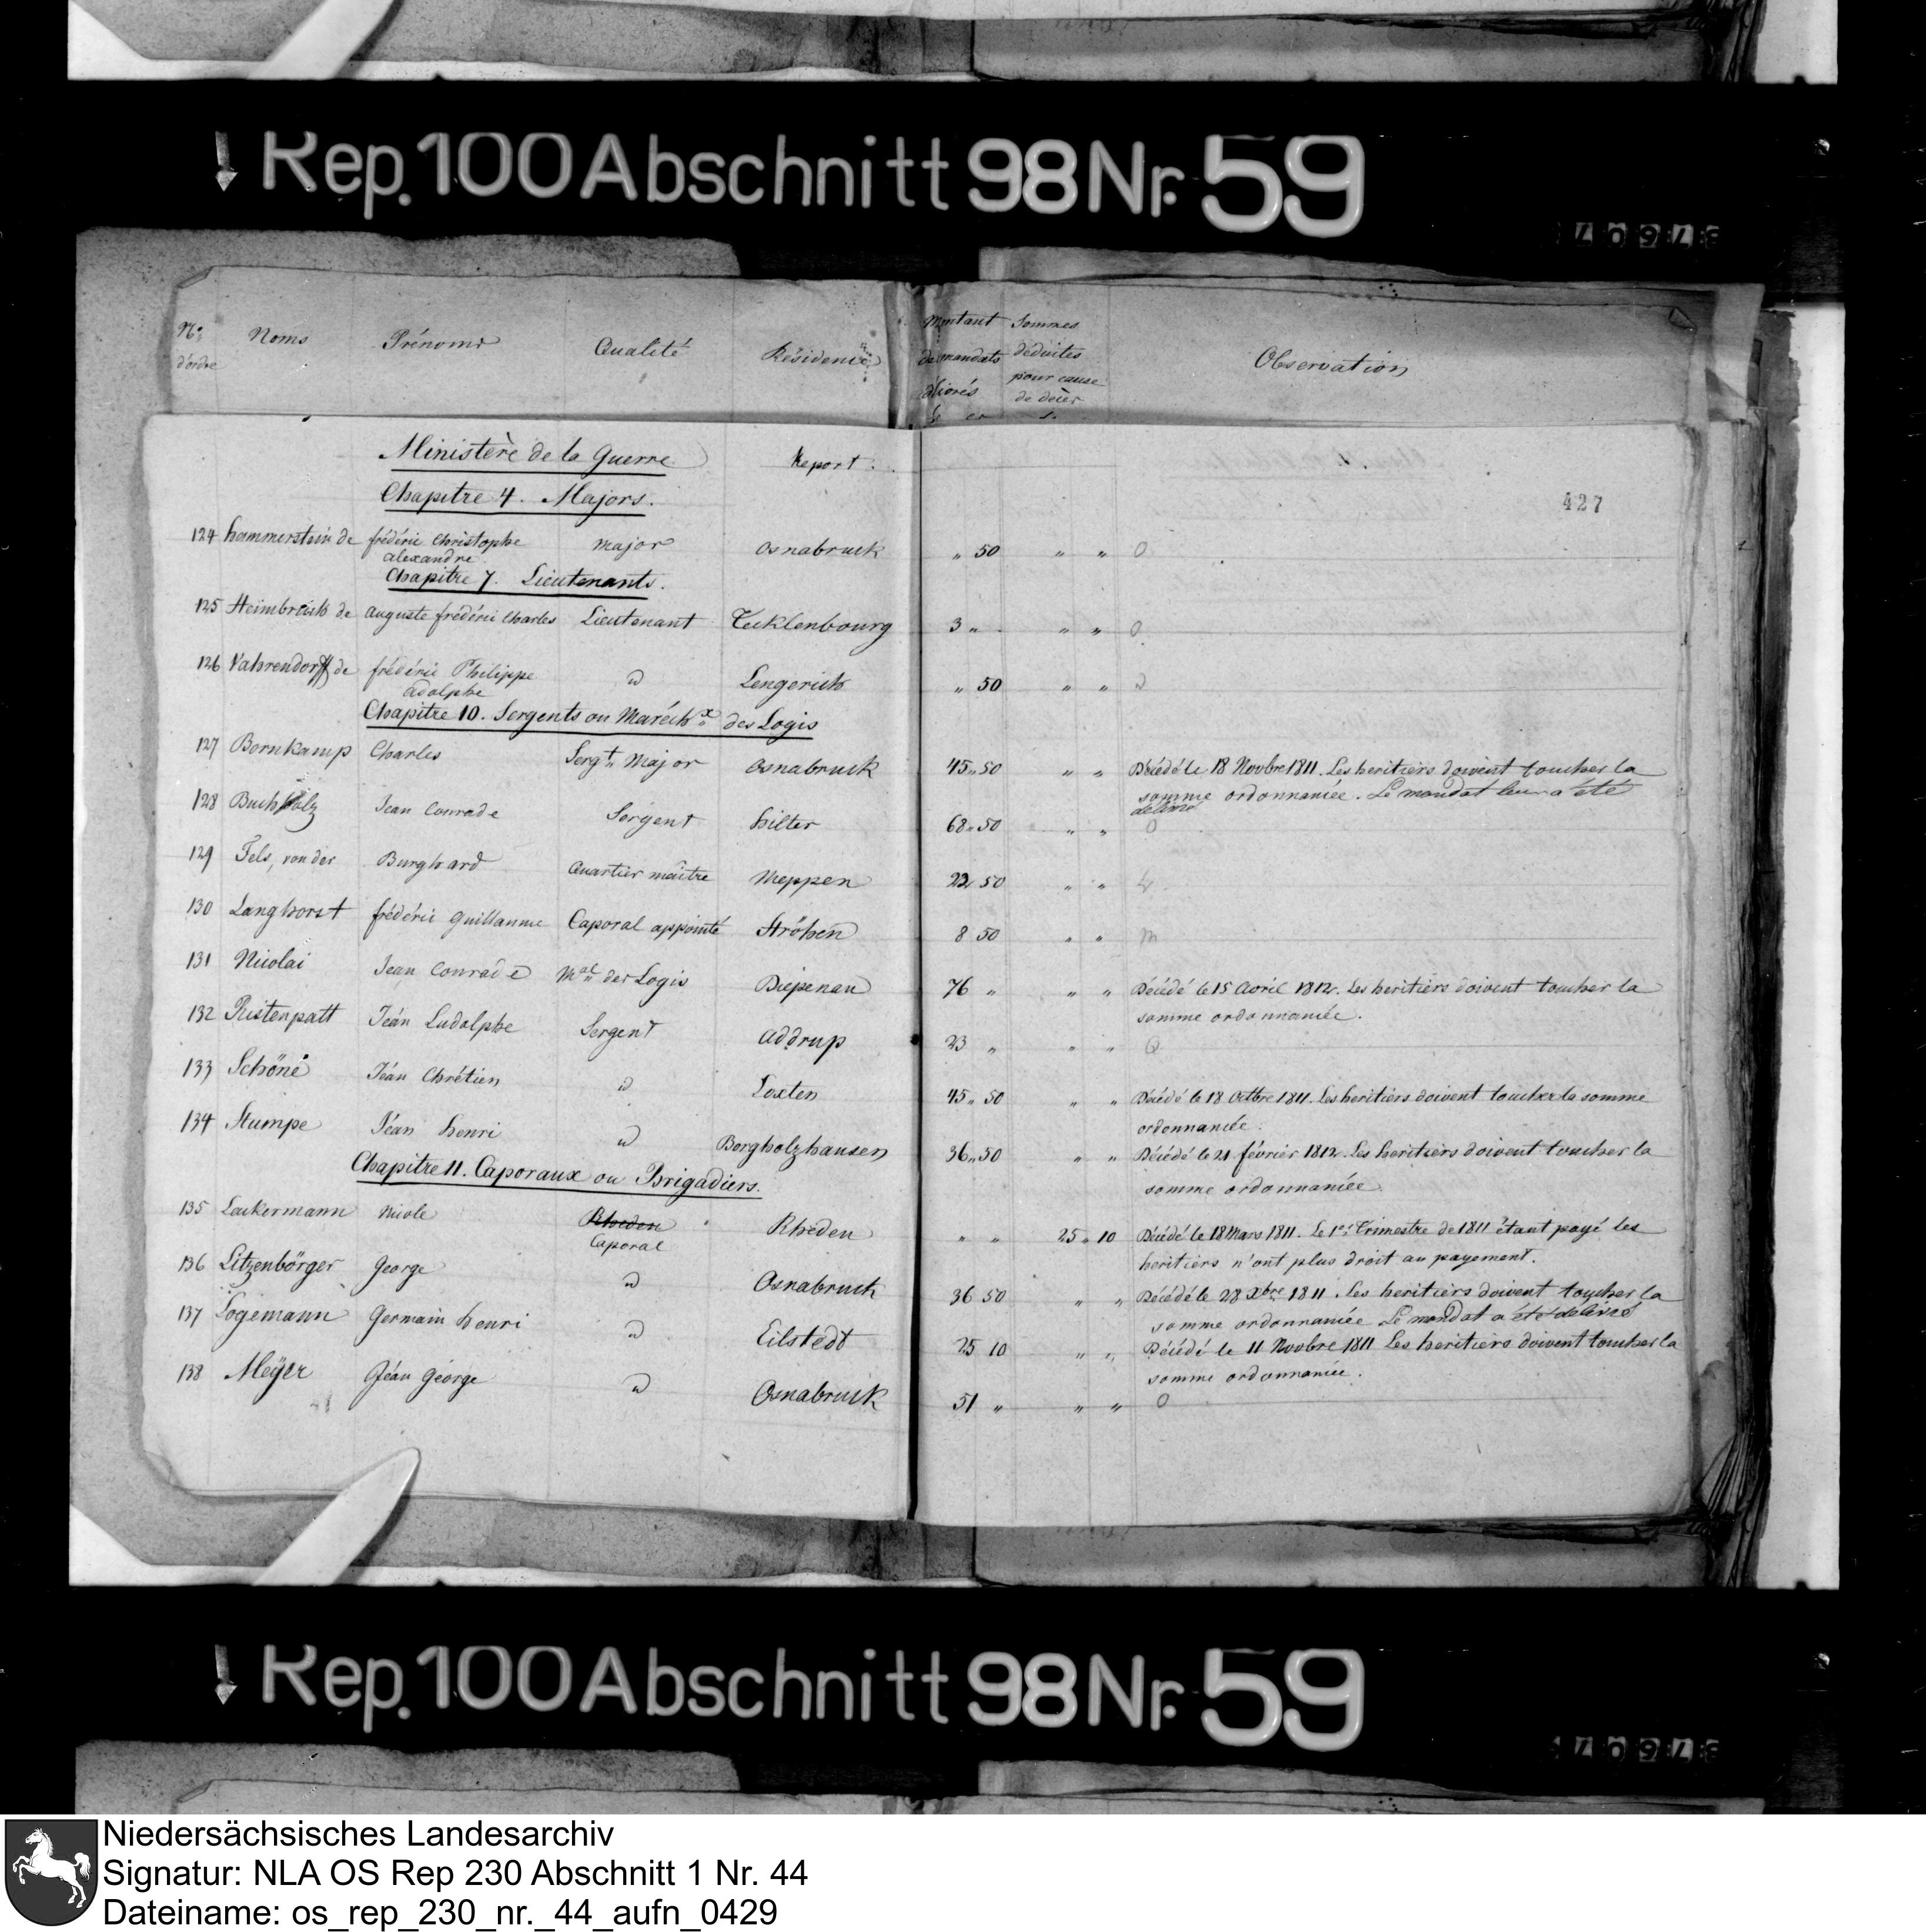 Rep. 100 Abschnitt 98 Nr. 59
37607
No. d'ordre Noms Prénoms Qualité Résidence Montant de mandats délivrés Sommes déduites pour cause de décès Observation
Ministère de la Guerre Report.
Chapitre 4. Majors.
427
124 hammerstein de frédéric Christophe major osnabruck " 50 " " O
alexandre
Chapitre 7. Lieutenants.
125 Heimbruch de auguste frédéric Charles Lieutenant Tecklenbourg 3 " " " O
126 Vahrendorff de frédéric Philippe id Lengerich " 50 " "
adolphe
Chapitre 10. Sergents ou Maréchx des Logis
127 Bornkamp Charles Sergt Major osnabruck 45 " 50 " " Décédé le 18 Novbre 1811. Les heritiers doivent toucher la
somme ordonnancée. Le mandat leur a été
délivré
128 Buchholz Jean Conrade Sergent hilter 68 " 50 " " O
129 Fels, von der Burghard Quartier maître Meppen 22 50 " "
130 Langhorst frédéric Guillaume Caporal appointé Ströhen 8 50 " " m
131 Nicolai Jean Conrade Mal des Logis Diepenau 76 " " " Décédé le 15 Avril 1812. Les heritiers doivent toucher la
somme ordonnancée.
132 Ristenpatt Jéan Ludolphe Sergent addrup 23 " " " Q
133 Schöne Jéan Chrétien id Loxten 45 " 50 " " Décédé le 18 Octbre 1811. Les heritiers doivent toucher la somme
ordonnancée.
134 Stumpe Jéan henri id Borgholzhausen 36 " 50 " " Décédé le 21 février 1812. Les heritiers doivent toucher la
somme ordonnancée
Chapitre 11. Caporaux ou Brigadiers.
135 Leukermann Nicole Rheden Rheden " " 25 " 10 Décédé le 18 Mars 1811. Le 1er Trimestre de 1811 étant payé les
Caporal heritiers n'ont plus droit au payement.
136 Litzenbörger George id Osnabruck 36 50 " " Décédé le 28 Xbre 1811. Les heritiers doivent toucher la
somme ordonnancée Le mandat a été delivré
137 Logemann Germain henri id Eilstedt 25 10 " " Décédé le 11 Novbre 1811 Les heritiers doivent toucher la
somme ordonnancée.
138 Meÿer Jéan George id Osnabruck 51 " " " O
Rep. 100 Abschnitt 98 Nr. 59
37607
Niedersächsisches Landesarchiv
Signatur: NLA OS Rep 230 Abschnitt 1 Nr. 44
Dateiname: os_rep_230_nr._44_aufn_0429